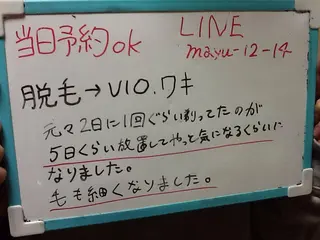 当日予約ok
LINE
mayu-12-14
脱毛→VIO.ワキ
元々2日に1回ぐらい剃ってたのが
5日くらい放置してやっと気になるくらいに
なりました。
毛も細くなりました。